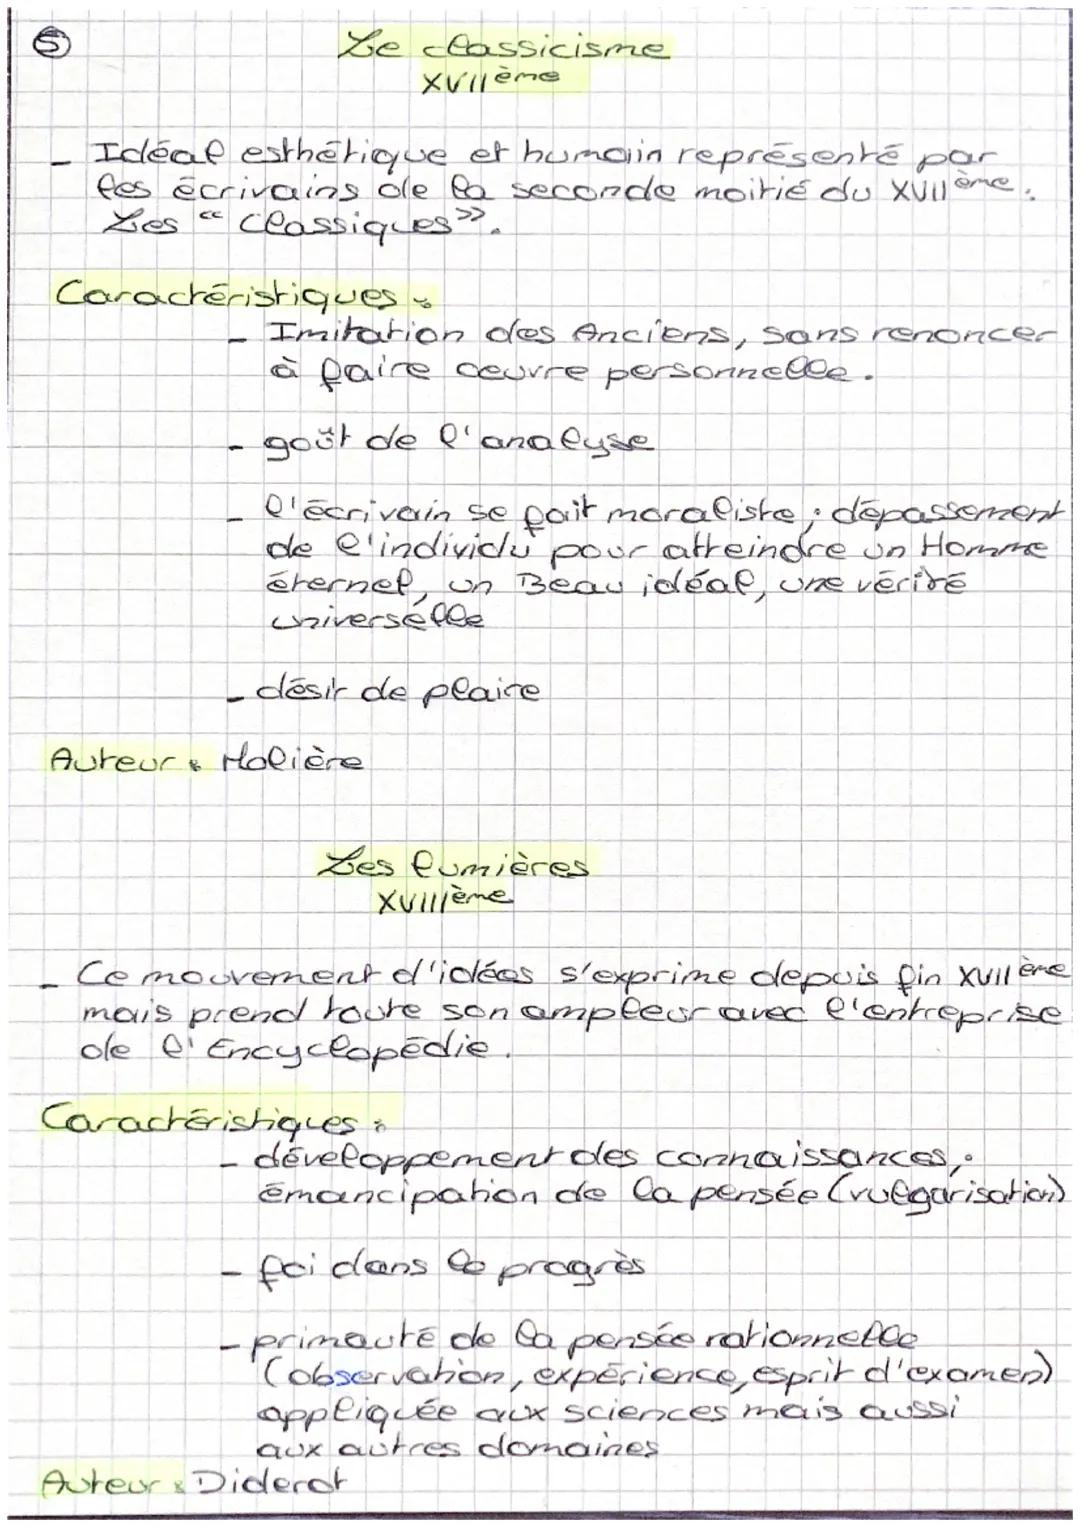 ⑤ Le classicisme
XVIIème
- Idéal esthétique et humain représenté par
les écrivains de la seconde moitié du XVIIème.
Les "classiques».
Caractéristiques :
- Imitation des Anciens, sans renoncer
à faire oeuvre personnelle.
- goût de l'analyse
- l'écrivain se fait moraliste ; dépassement
de l'individu pour atteindre un Homme
éternel, un Beau idéal, une vérité
universélle
- désir de plaire
Auteur : Molière
Les lumières
XVIIIème
- Ce mouvement d'idées s'exprime depuis fin XVIIème
mais prend toute son ampleur avec l'entreprise
de l'Encyclopédie.
Caractéristiques :
- développement des connaissances ;
émancipation de la pensée (vulgarisation)
- foi dans le progrès
- primauté de la pensée rationnelle
(observation, expérience, esprit d'examen)
appliquée aux sciences mais aussi
aux autres domaines
Auteur : Diderot